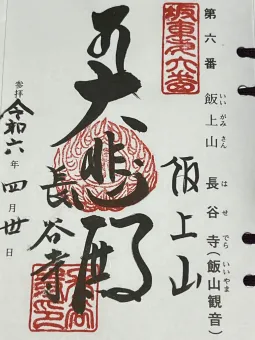 第六番 飯上山 長谷寺(飯山観音)
いいがみさん はせでら いいやま
坂東第六番
飯上山
大悲殿
長谷寺
参拝 令和六年 四月廿日